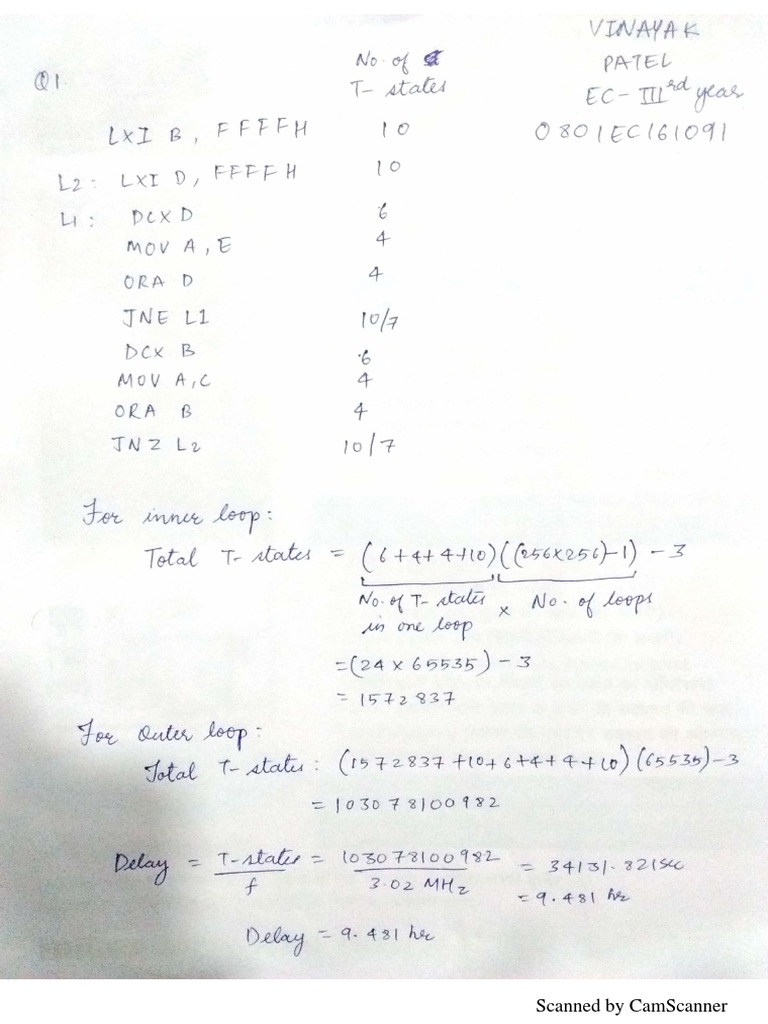 VINAYAK
PATEL
EC-IIIrd year
0801EC161091
Q1.
No. of
T-states
LXI B, FFFFH 10
L2: LXI D, FFFFH 10
L1: DCX D 6
MOV A, E 4
ORA D 4
JNE L1 10/7
DCX B 6
MOV A, C 4
ORA B 4
JNZ L2 10/7
For inner loop:
Total T-states = (6+4+4+10)((256×256)-1) - 3
No. of T-states × No. of loops
in one loop
= (24 × 65535) - 3
= 1572837
For Outer loop:
Total T-states: (1572837 +10+6+4+4+10)(65535)-3
= 103078100982
Delay = T-states/f = 103078100982/3.02 MHz = 34131.821sec
= 9.481 hr
Delay = 9.481 hr
Scanned by CamScanner